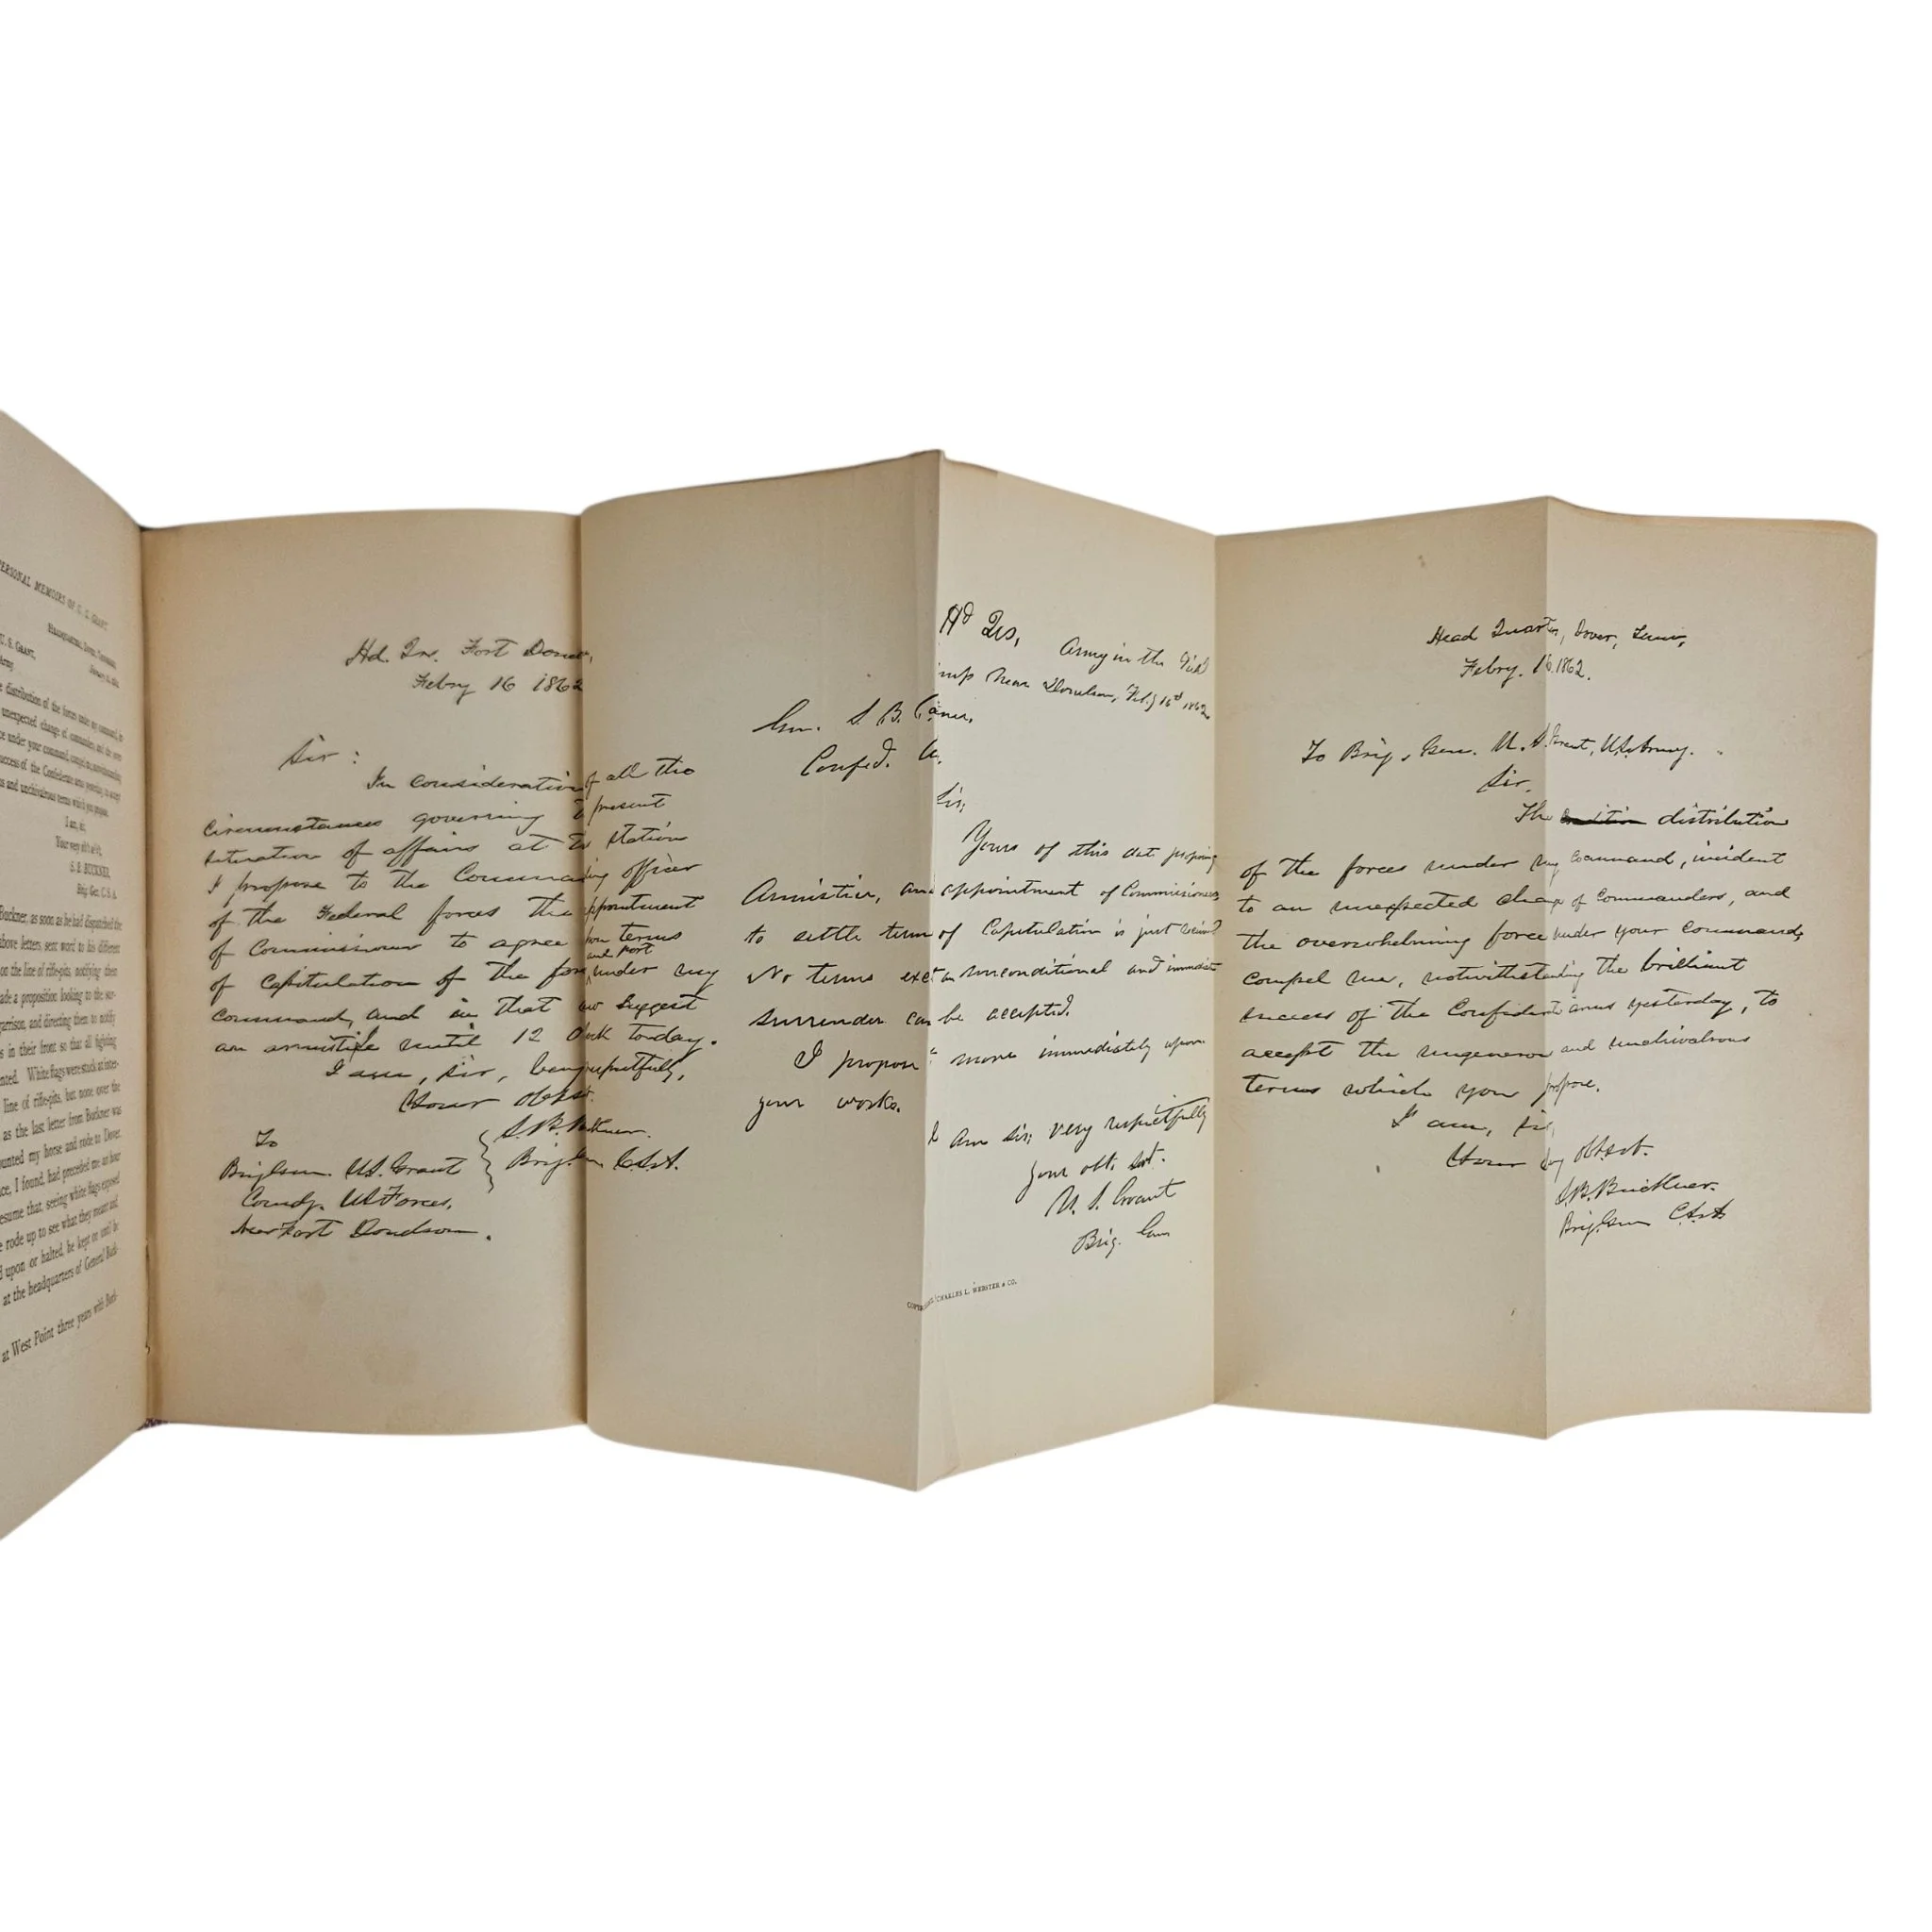 PERSONAL MEMOIRS OF U. S. GRANT.
HEADQUARTERS, DOVER, TENNESSEE,
U. S. GRANT,
Army
distribution of the forces under my command,
unexpected change of commanders, and the
under your command, compel me, notwithstanding
success of the Confederate arms yesterday, to accept
and unchivalrous terms which you propose.
I am, sir,
Your very ob't se'v't,
S. B. BUCKNER,
Brig. Gen. C. S. A.
Buckner, as soon as he had dispatched the
above letters sent word to his different
on the line of rifle-pits, notifying them
made a proposition looking to the sur-
garrison, and directing them to notify
in their front so that all fighting
White flags were stuck at inter-
line of rifle-pits, but none over the
as the last letter from Buckner was
mounted my horse and rode to Dover.
I found, had preceded me an hour
seeing white flags exposed
rode up to see what they meant and,
upon or halted, he kept on until he
at the headquarters of General Buck-
at West Point three years with Buck-
Hd. Qrs. Fort
Febry 16 1862
Sir:
In consideration of all the
circumstances governing present
situation of affairs at station
I propose to the Commanding officer
of the Federal forces the appointment
of Commissioners to agree terms
and Post
of capitulation of the under my
command, and in that suggest
an armistice until 12 today.
I am, sir,
Your obt sevt.
S. B. Buckner.
Brig. Gen C.S.A.
To
Brig Gen. U.S. Grant
Comdg. US Forces,
Near Fort Donelson.
Hd Qrs, Army in the Field
near Donelson, Feby 16th 1862
Gen. S. B.
Confed.
Sir;
Yours of this date proposing
Armistice, and appointment of Commissioners
to settle terms of Capitulation is just received
No terms except an unconditional and immediate
surrender can be accepted.
I propose to move immediately upon
your works.
I am Sir; very respectfully
your obt. svt.
U. S. Grant
Brig. Gen
CHARLES L. WEBSTER & CO.
Head Quarters, Dover, Tenn,
Febry. 16 1862.
To Brig. Gen. U. S. Grant, U.S. Army.
Sir.
The distribution
of the forces under my command, incident
to an unexpected change of Commanders, and
the overwhelming force under your command,
compel me, notwithstanding the brilliant
success of the Confederate arms yesterday, to
accept the ungenerous and unchivalrous
terms which you propose.
I am, sir,
Your obt. svt.
S. B. Buckner.
Brig. Gen C.S.A